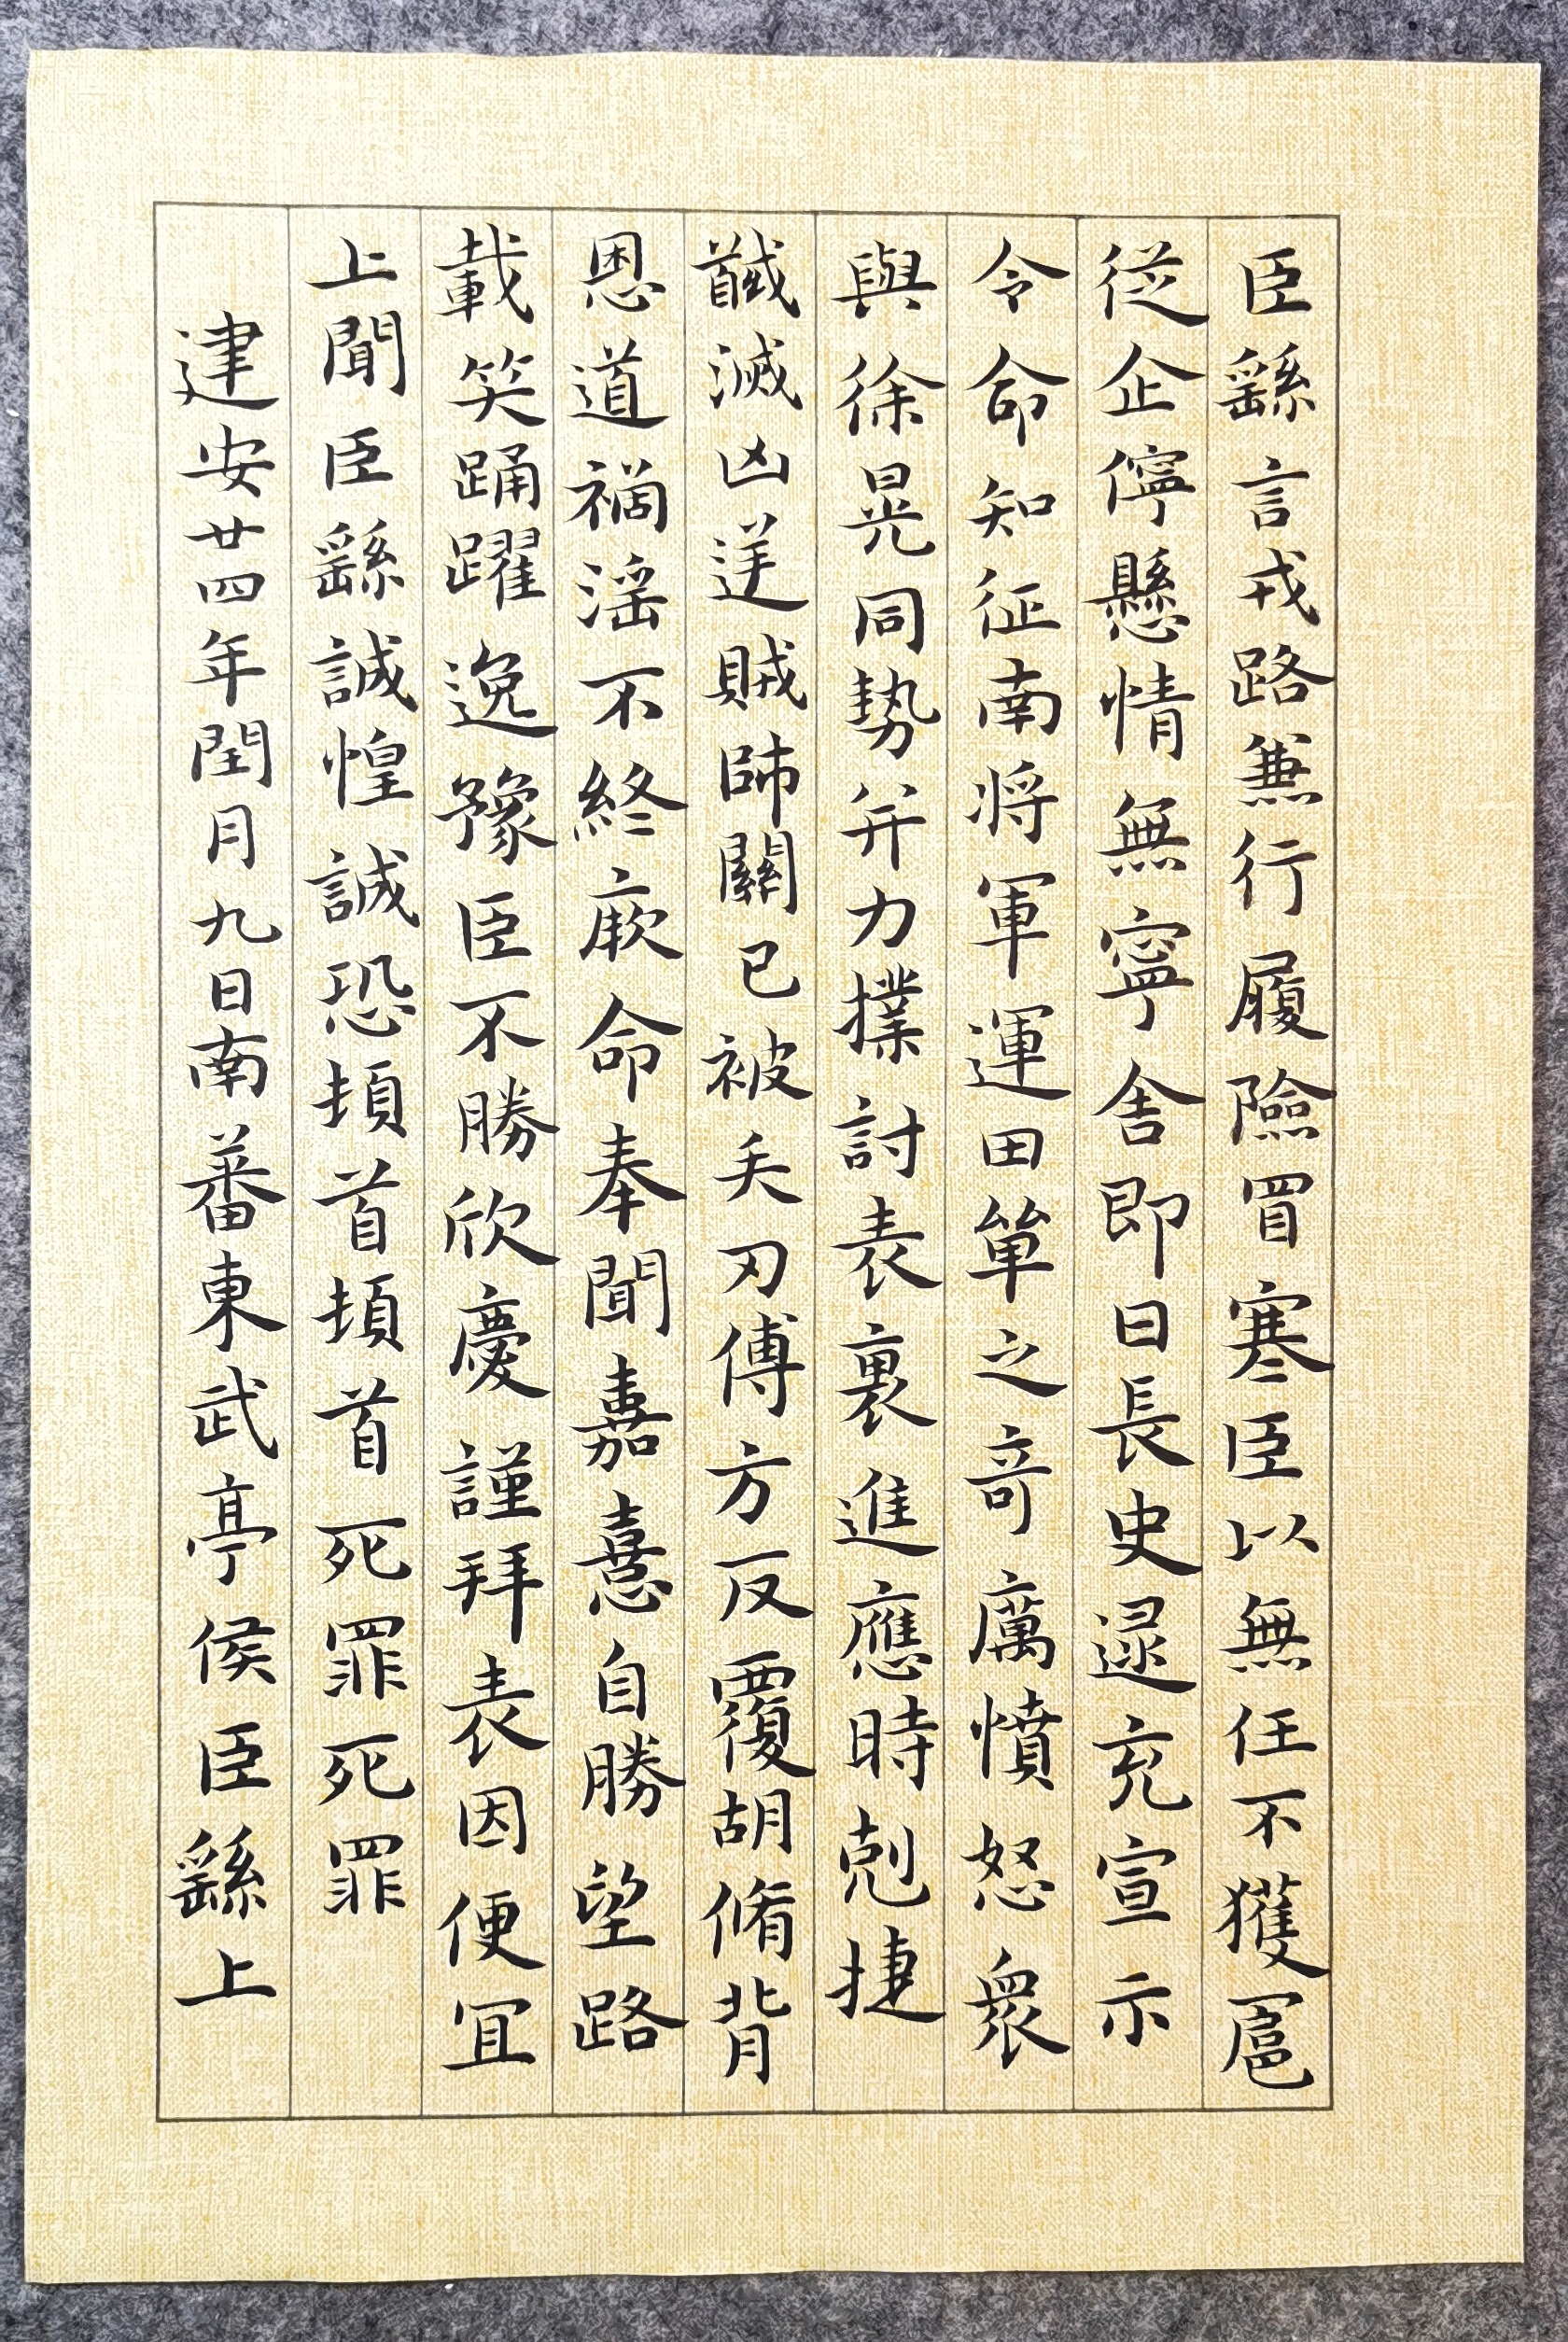 臣繇言戎路兼行履險冒寒臣以無任不獲扈
從企儜懸情無寧舍即日長史逯充宣示
令命知征南將軍運田單之奇厲憤怒眾
與徐晃同勢并力撲討表裏進應時剋捷
馘滅凶逆賊帥關已被矢刃傅方反覆胡脩背
恩道禍淫不終厥命奉聞嘉憙自勝望路
載笑踊躍逸豫臣不勝欣慶謹拜表因便宜
上聞臣繇誠惶誠恐頓首頓首死罪死罪
建安廿四年閏月九日南蕃東武亭侯臣繇上